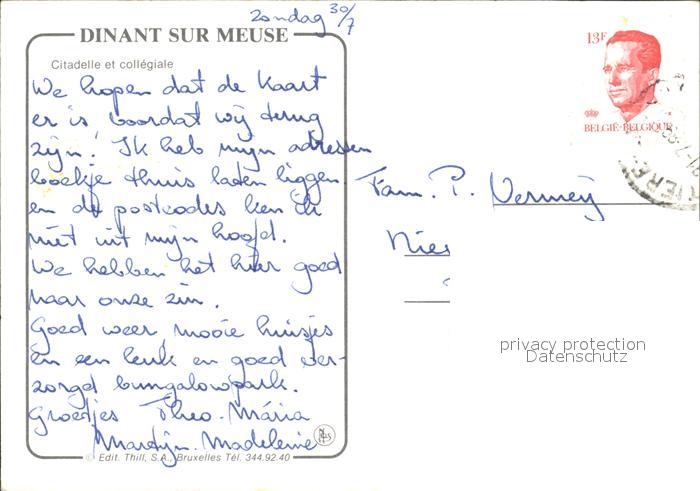 zondag 30/7
DINANT SUR MEUSE
Citadelle et collégiale
We hopen dat de kaart
er is voordat wij terug
zijn! Ik heb mijn adressen
boekje thuis laten liggen
en de postcodes ken ik
niet uit mijn hoofd.
We hebben het hier goed
naar onze zin.
Goed weer, mooie huisjes
en een leuk en goed ver-
zorgd bungalowpark.
Groetjes Theo. Mária
Martijn. Madeleine
© Edit. Thill, S.A., Bruxelles Tél. 344.92.40
13F
BELGIË-BELGIQUE
Fam. P. Vermeij
privacy protection
Datenschutz